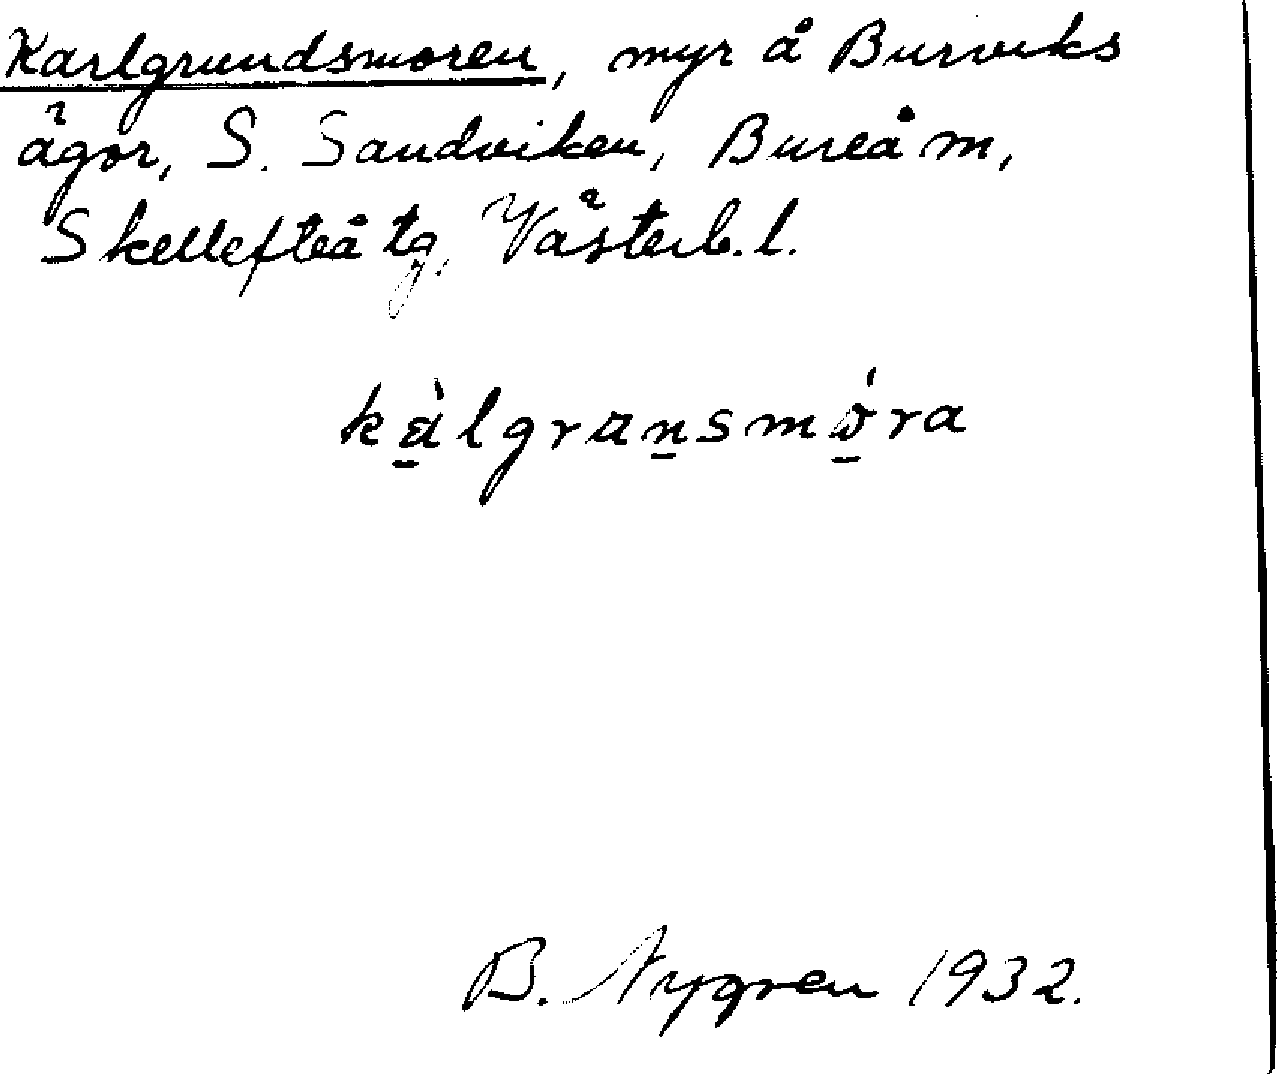 Karlgrundsmoren, myr å Burviks
ägor, S. Sandviken, Bureå m,
Skellefteå tg, Västerb. l.
kàlgransmóra
B. Nygren 1932.